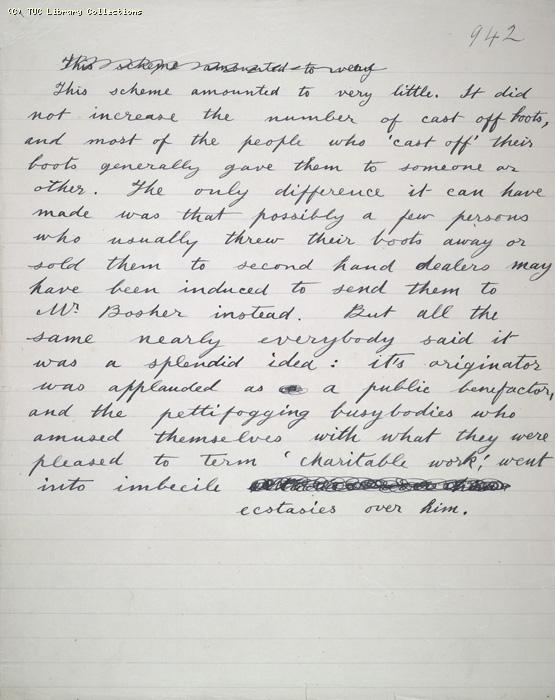 (C) TUC Library Collections
942
This scheme amounted to very
This scheme amounted to very little. It did
not increase the number of cast off boots,
and most of the people who 'cast off' their
boots generally gave them to someone or
other. The only difference it can have
made was that possibly a few persons
who usually threw their boots away or
sold them to second hand dealers may
have been induced to send them to
Mr. Bosher instead. But all the
same nearly everybody said it
was a splendid idea: it's originator
was applauded as a public benefactor,
and the pettifogging busybodies who
amused themselves with what they were
pleased to term 'charitable work', went
into imbecile
ecstasies over him.